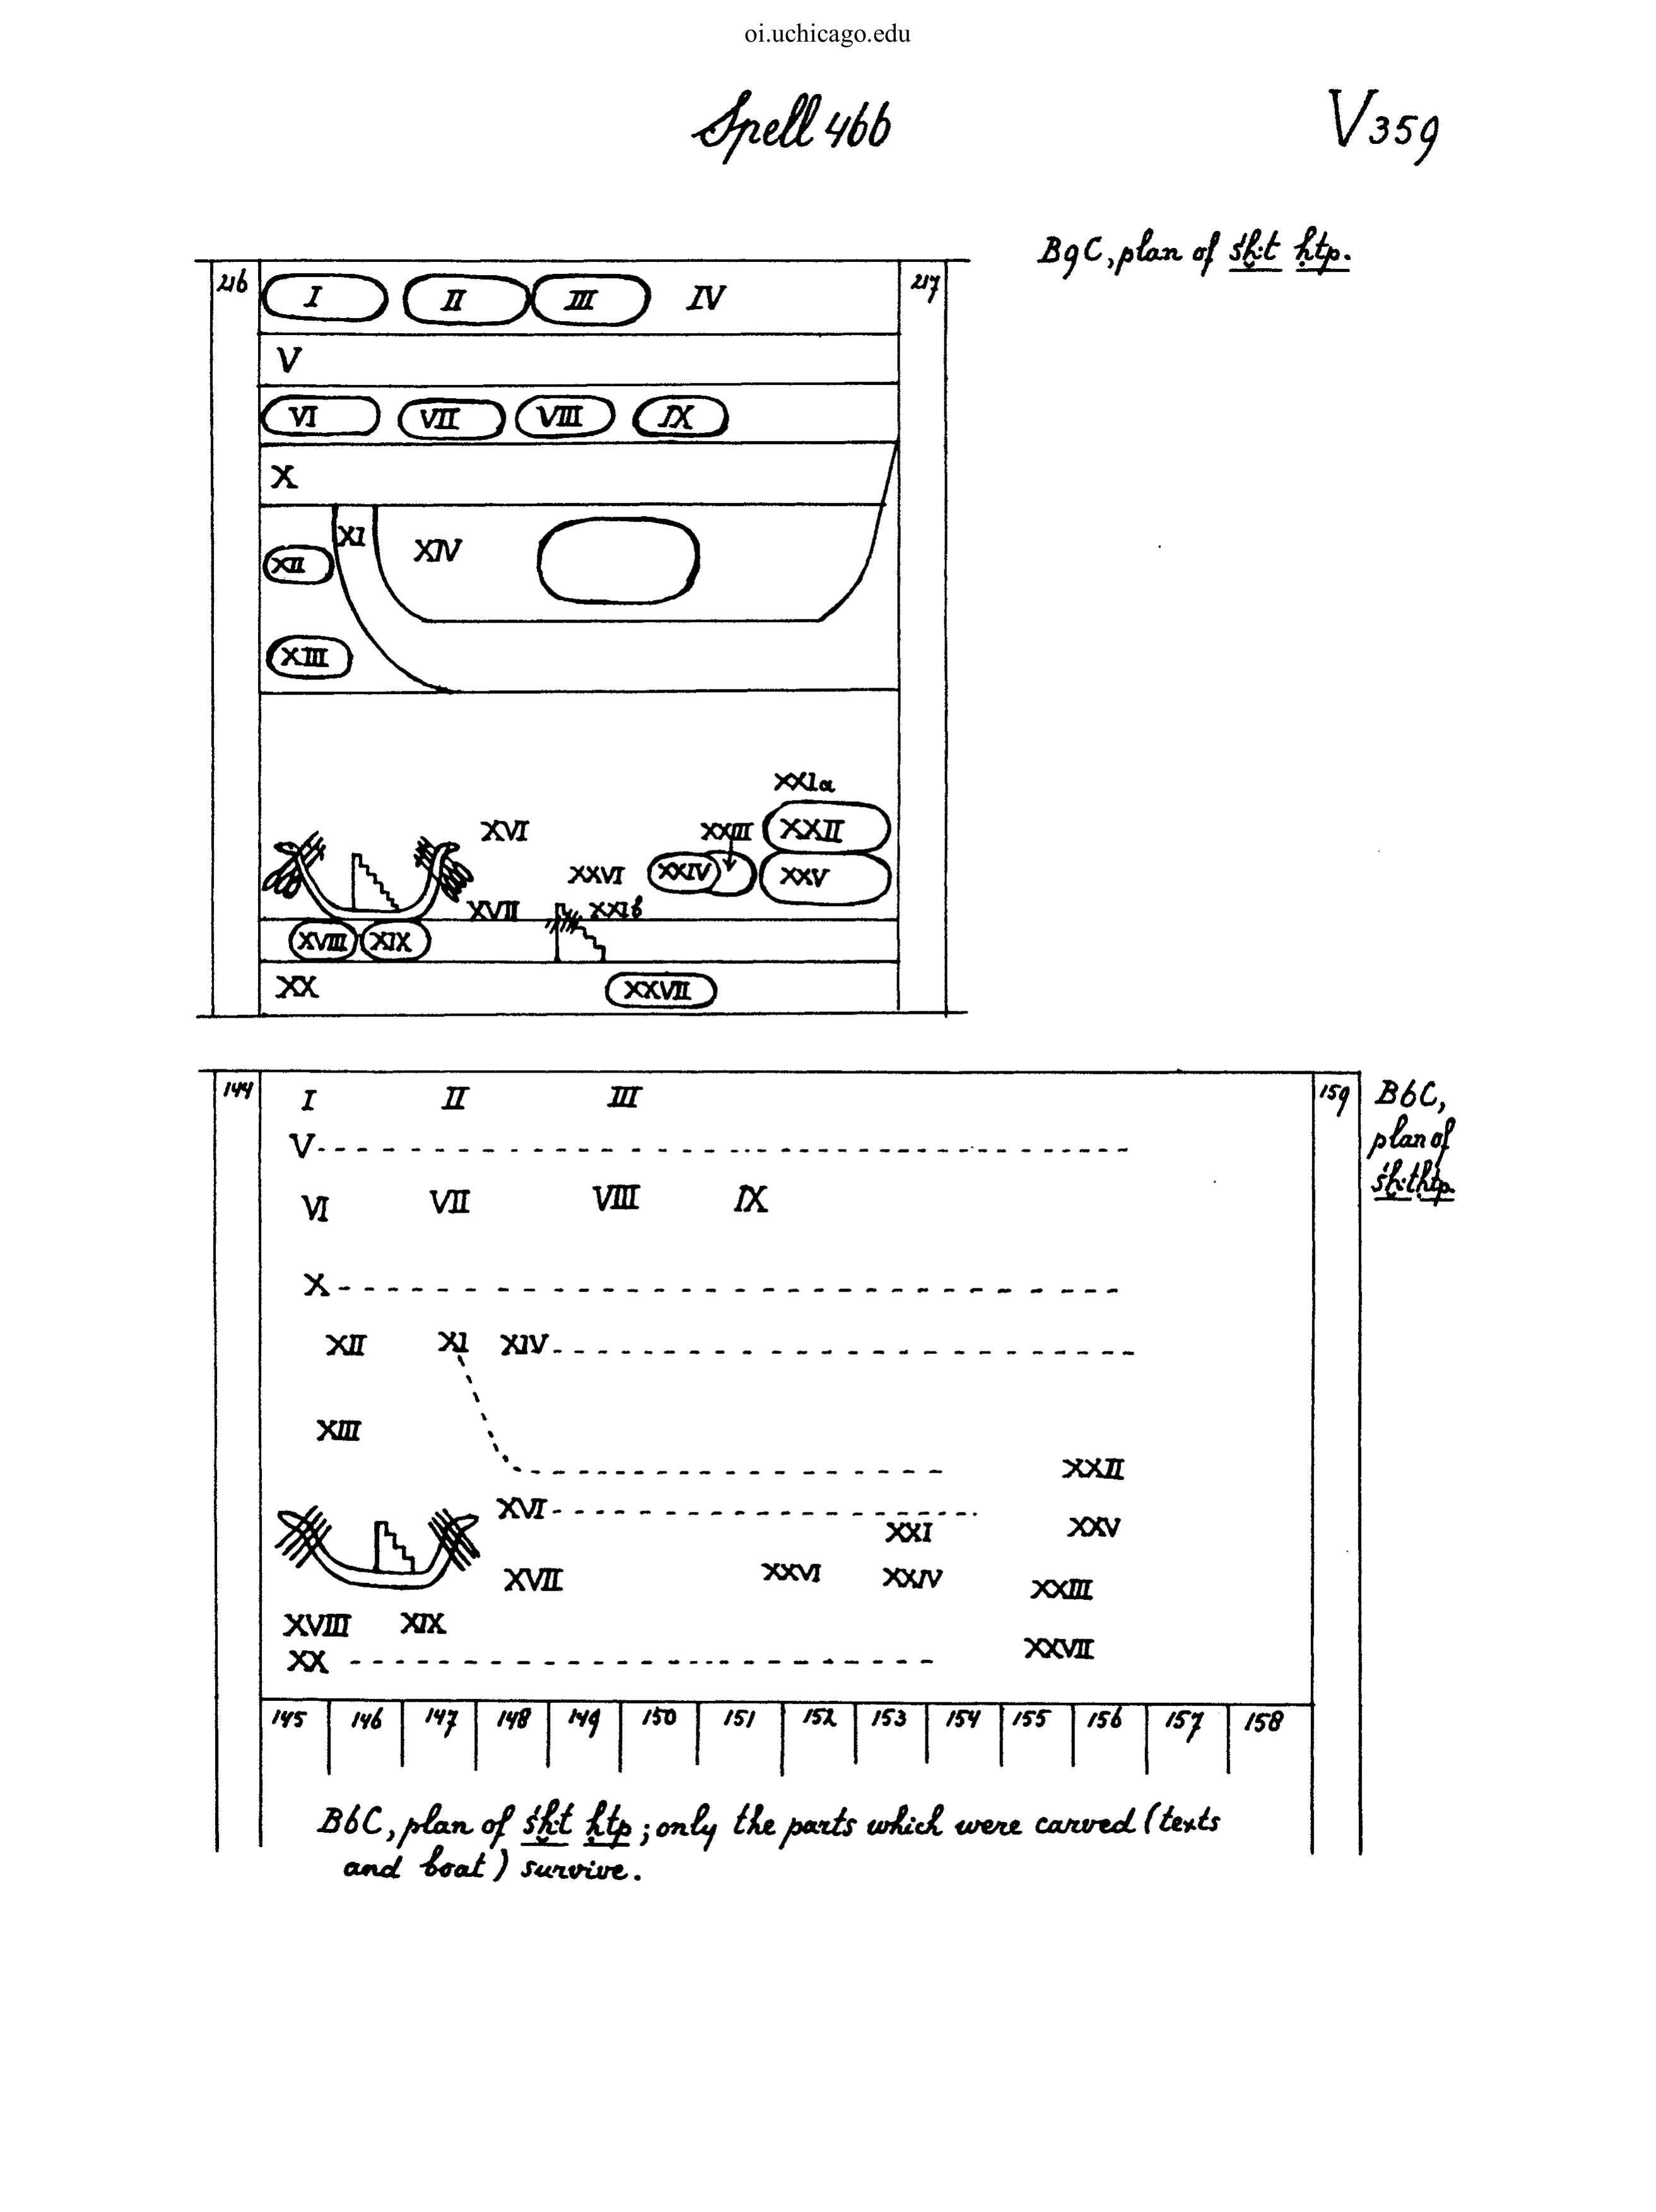 oi.uchicago.edu
Spell 466
V 359
B9C, plan of śḫ·t ḥtp.
216
I II III IV
217
V
VI VII VIII IX
X
XI
XIV
XII
XIII
XXIa
XVI XXIII XXII
XXVI XXIV XXV
XVII XXIb
XVIII XIX
XX XXVII
144
I II III
159
B6C,
plan of
śḫ·t ḥtp.
V
VI VII VIII IX
X
XII XI XIV
XIII
XXII
XVI
XXI XXV
XVII XXVI XXIV XXIII
XVIII XIX
XX XXVII
145 146 147 148 149 150 151 152 153 154 155 156 157 158
B6C, plan of śḫ·t ḥtp; only the parts which were carved (texts
and boat) survive.